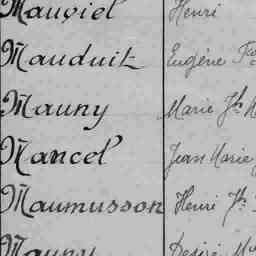 Mauviel Henri
Mauduit Eugène
Mauny Marie Jh
Mancel Jean Marie
Maumusson Henri Jh
Mauny Désiré